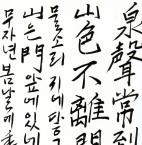 泉聲常到
山色不離門
물소리
山은 門 앞에 있네
무자년 봄날에